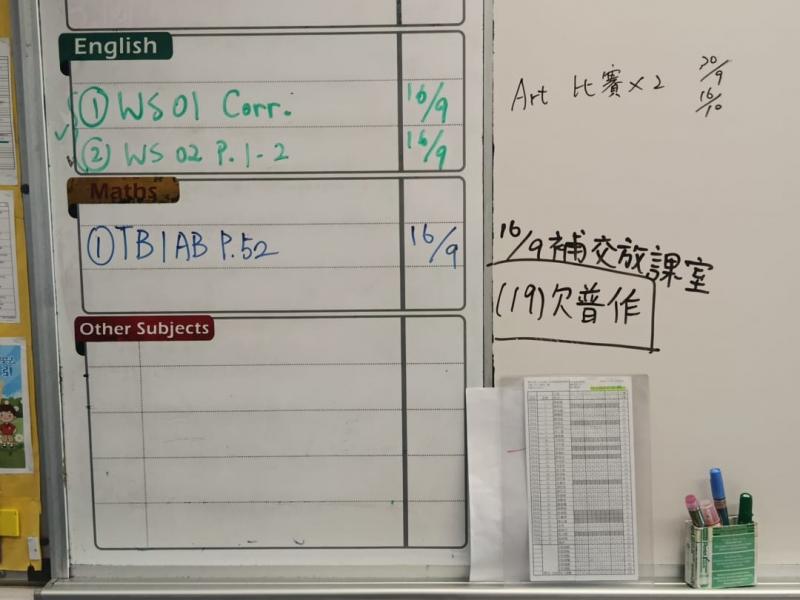 English
① WS 01 Corr. 16/9
② WS 02 P. 1-2 16/9
Maths
① TB1AB P.52 16/9
Other Subjects
Art 比賽 x 2 30/9
16/10
16/9 補交放課室
(19)欠普作